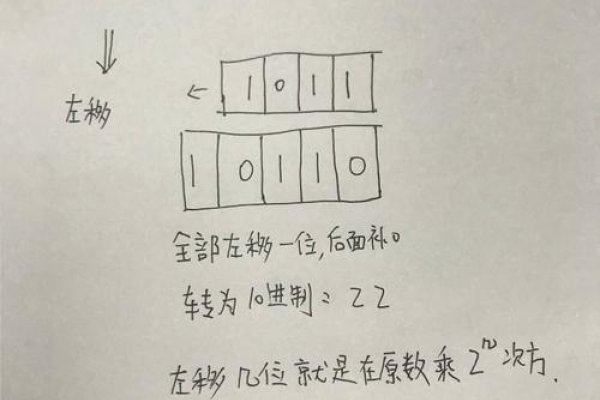 左移
1 0 1 1
1 0 1 1 0
全部左移一位,后面补0
转为10进制:22
左移几位就是在原数乘2ⁿ次方.